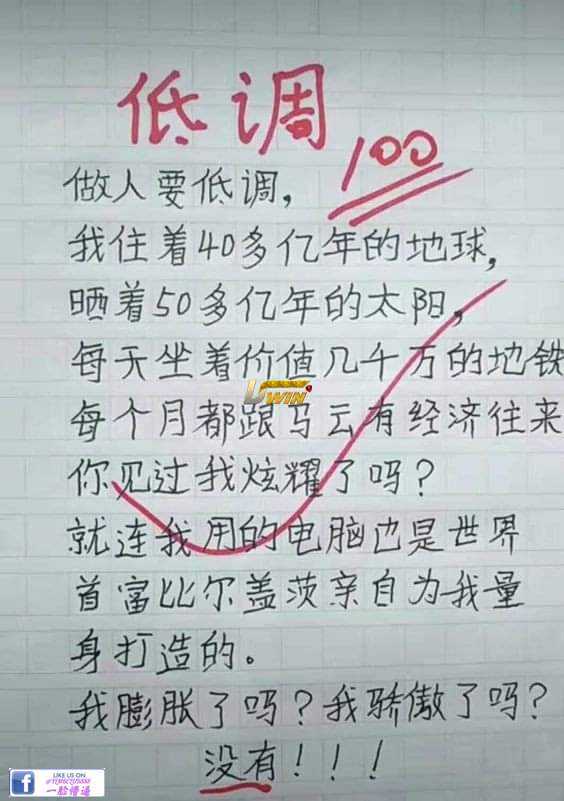 低调
100
做人要低调,
我住着40多亿年的地球,
晒着50多亿年的太阳,
每天坐着价值几千万的地铁
每个月都跟马云有经济往来
你见过我炫耀了吗?
就连我用的电脑也是世界
首富比尔盖茨亲自为我量
身打造的。
我膨胀了吗?我骄傲了吗?
没有!!!
WIN
LIKE US ON
一脸懵逼